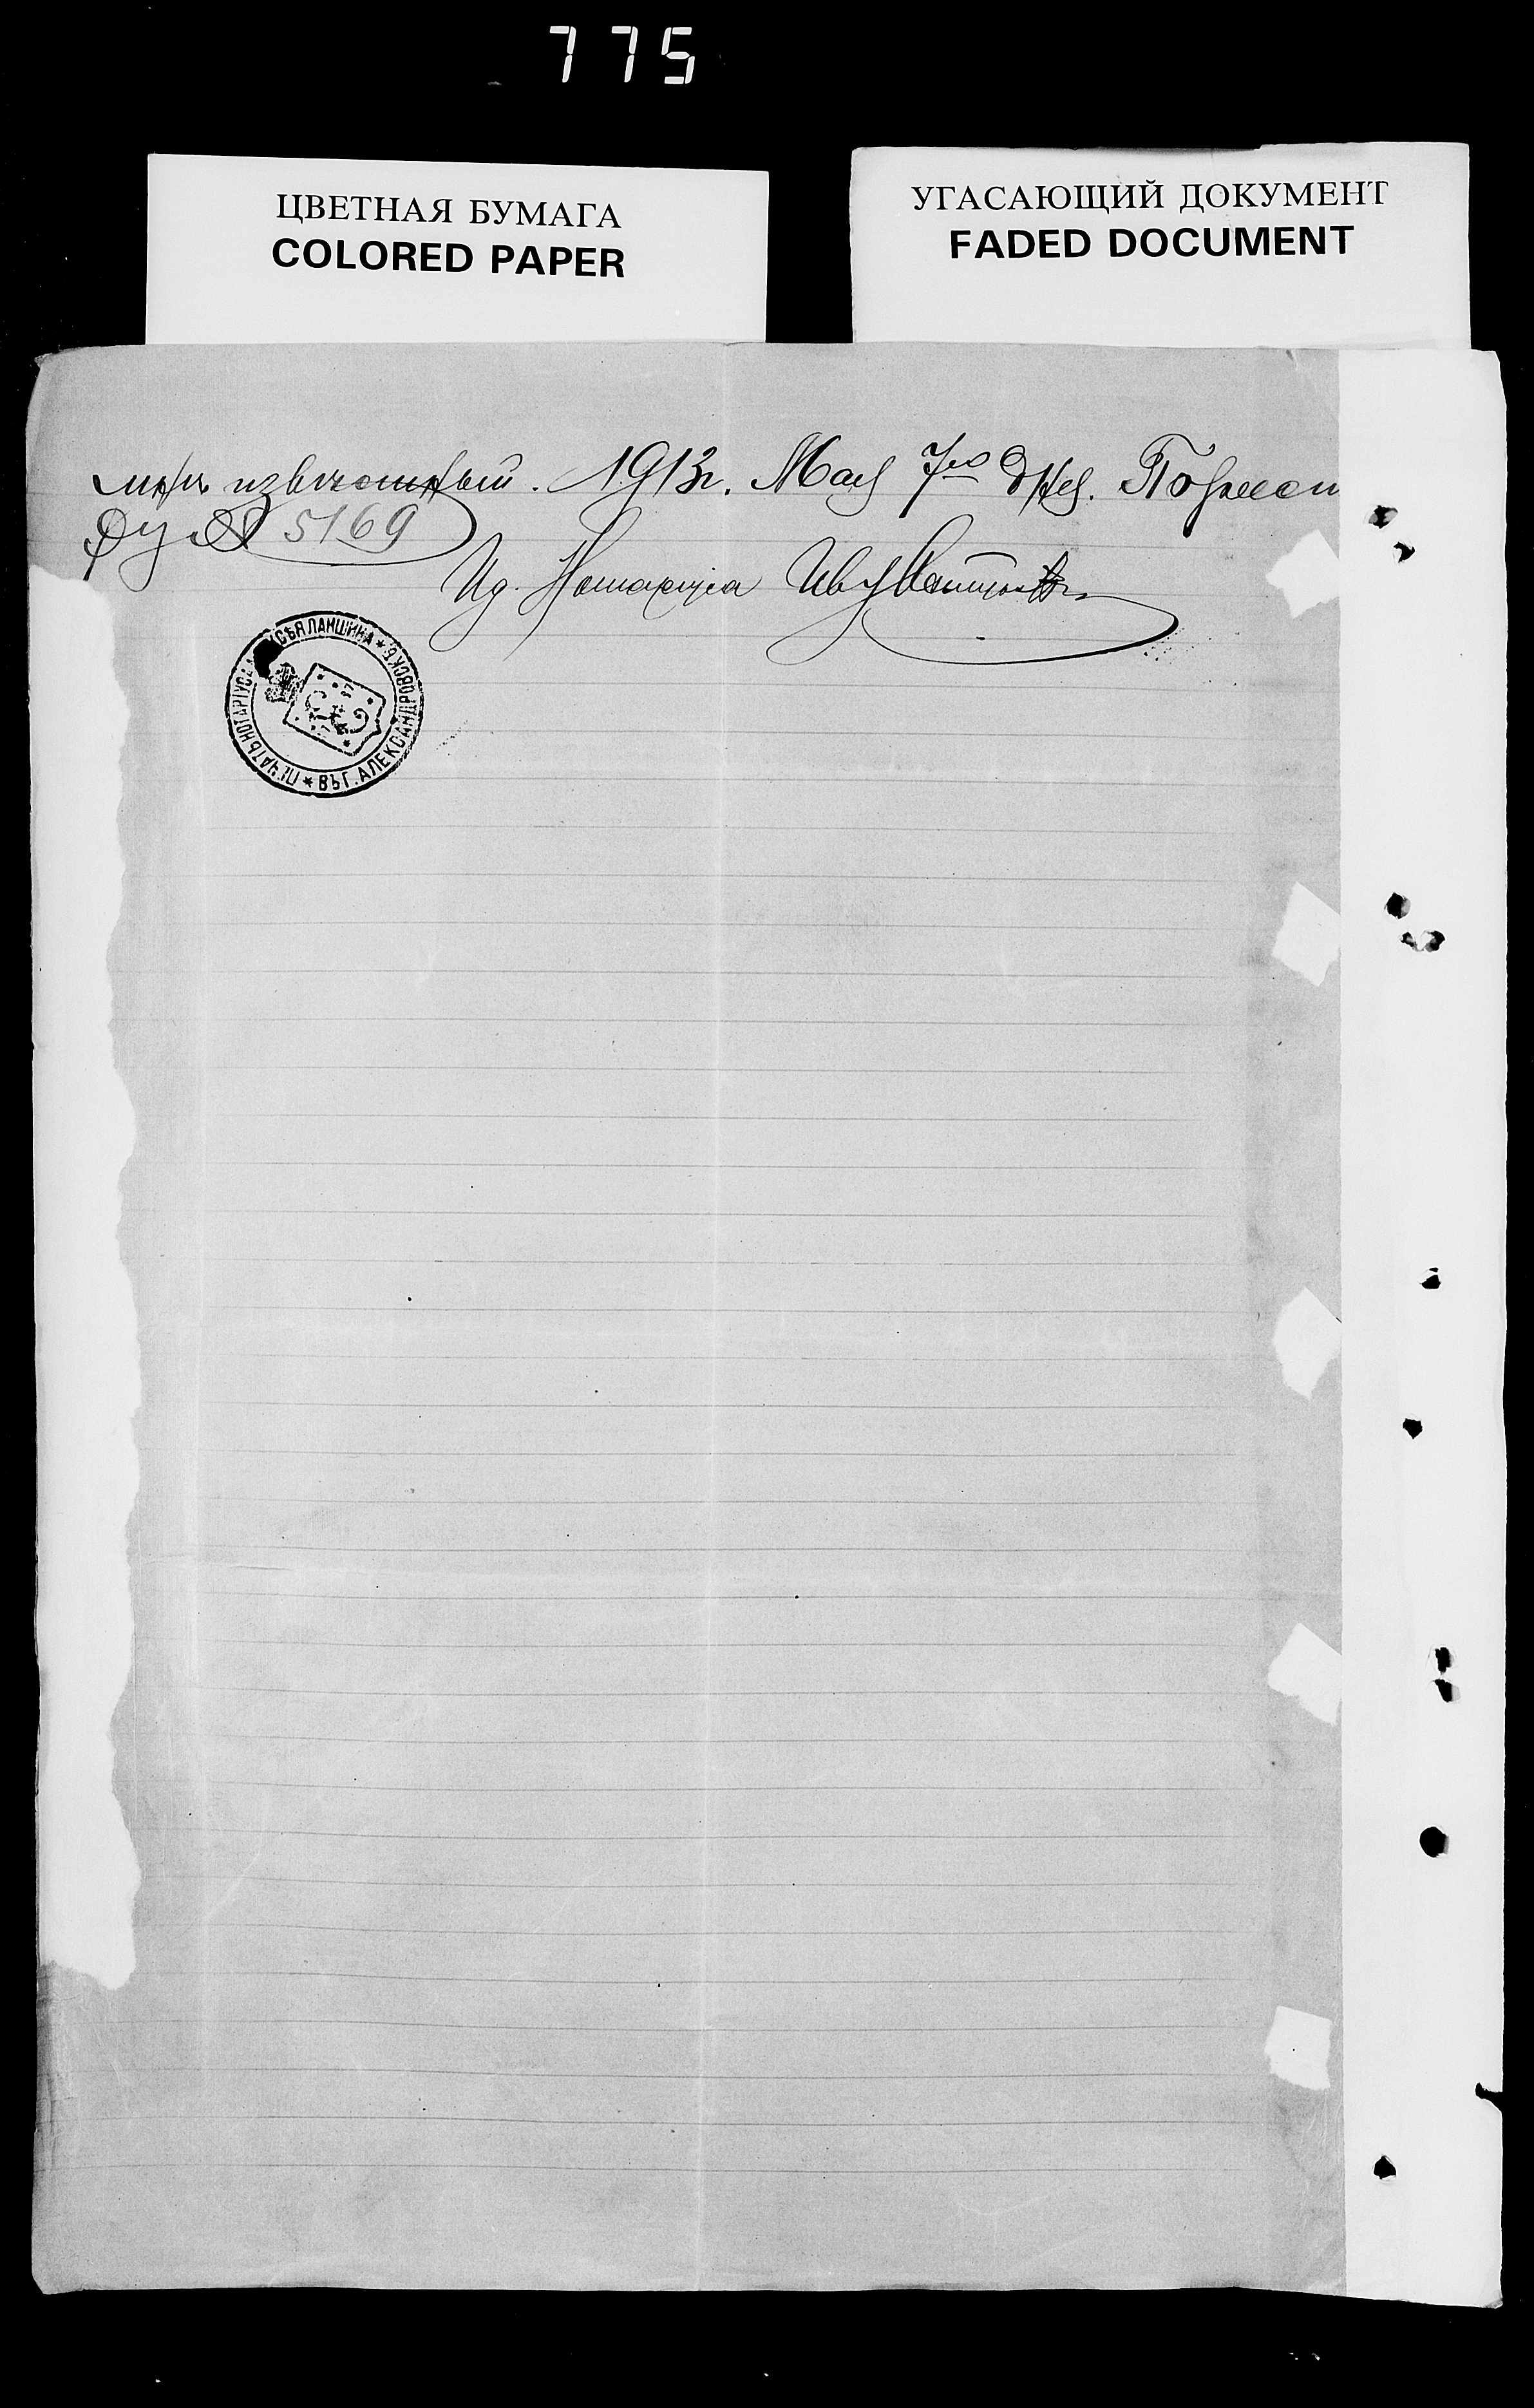 775
ЦВЕТНАЯ БУМАГА
COLORED PAPER
УГАСАЮЩИЙ ДОКУМЕНТ
FADED DOCUMENT
мнѣ извѣстный. 1913 г. Мая 7го дня. По реест
ру № 5169
И д. Нотаріуса
ПЕЧАТЬ НОТАРІУСА ЛАНШИНА * ВЪ Г. АЛЕКСАНДРОВСКѢ *